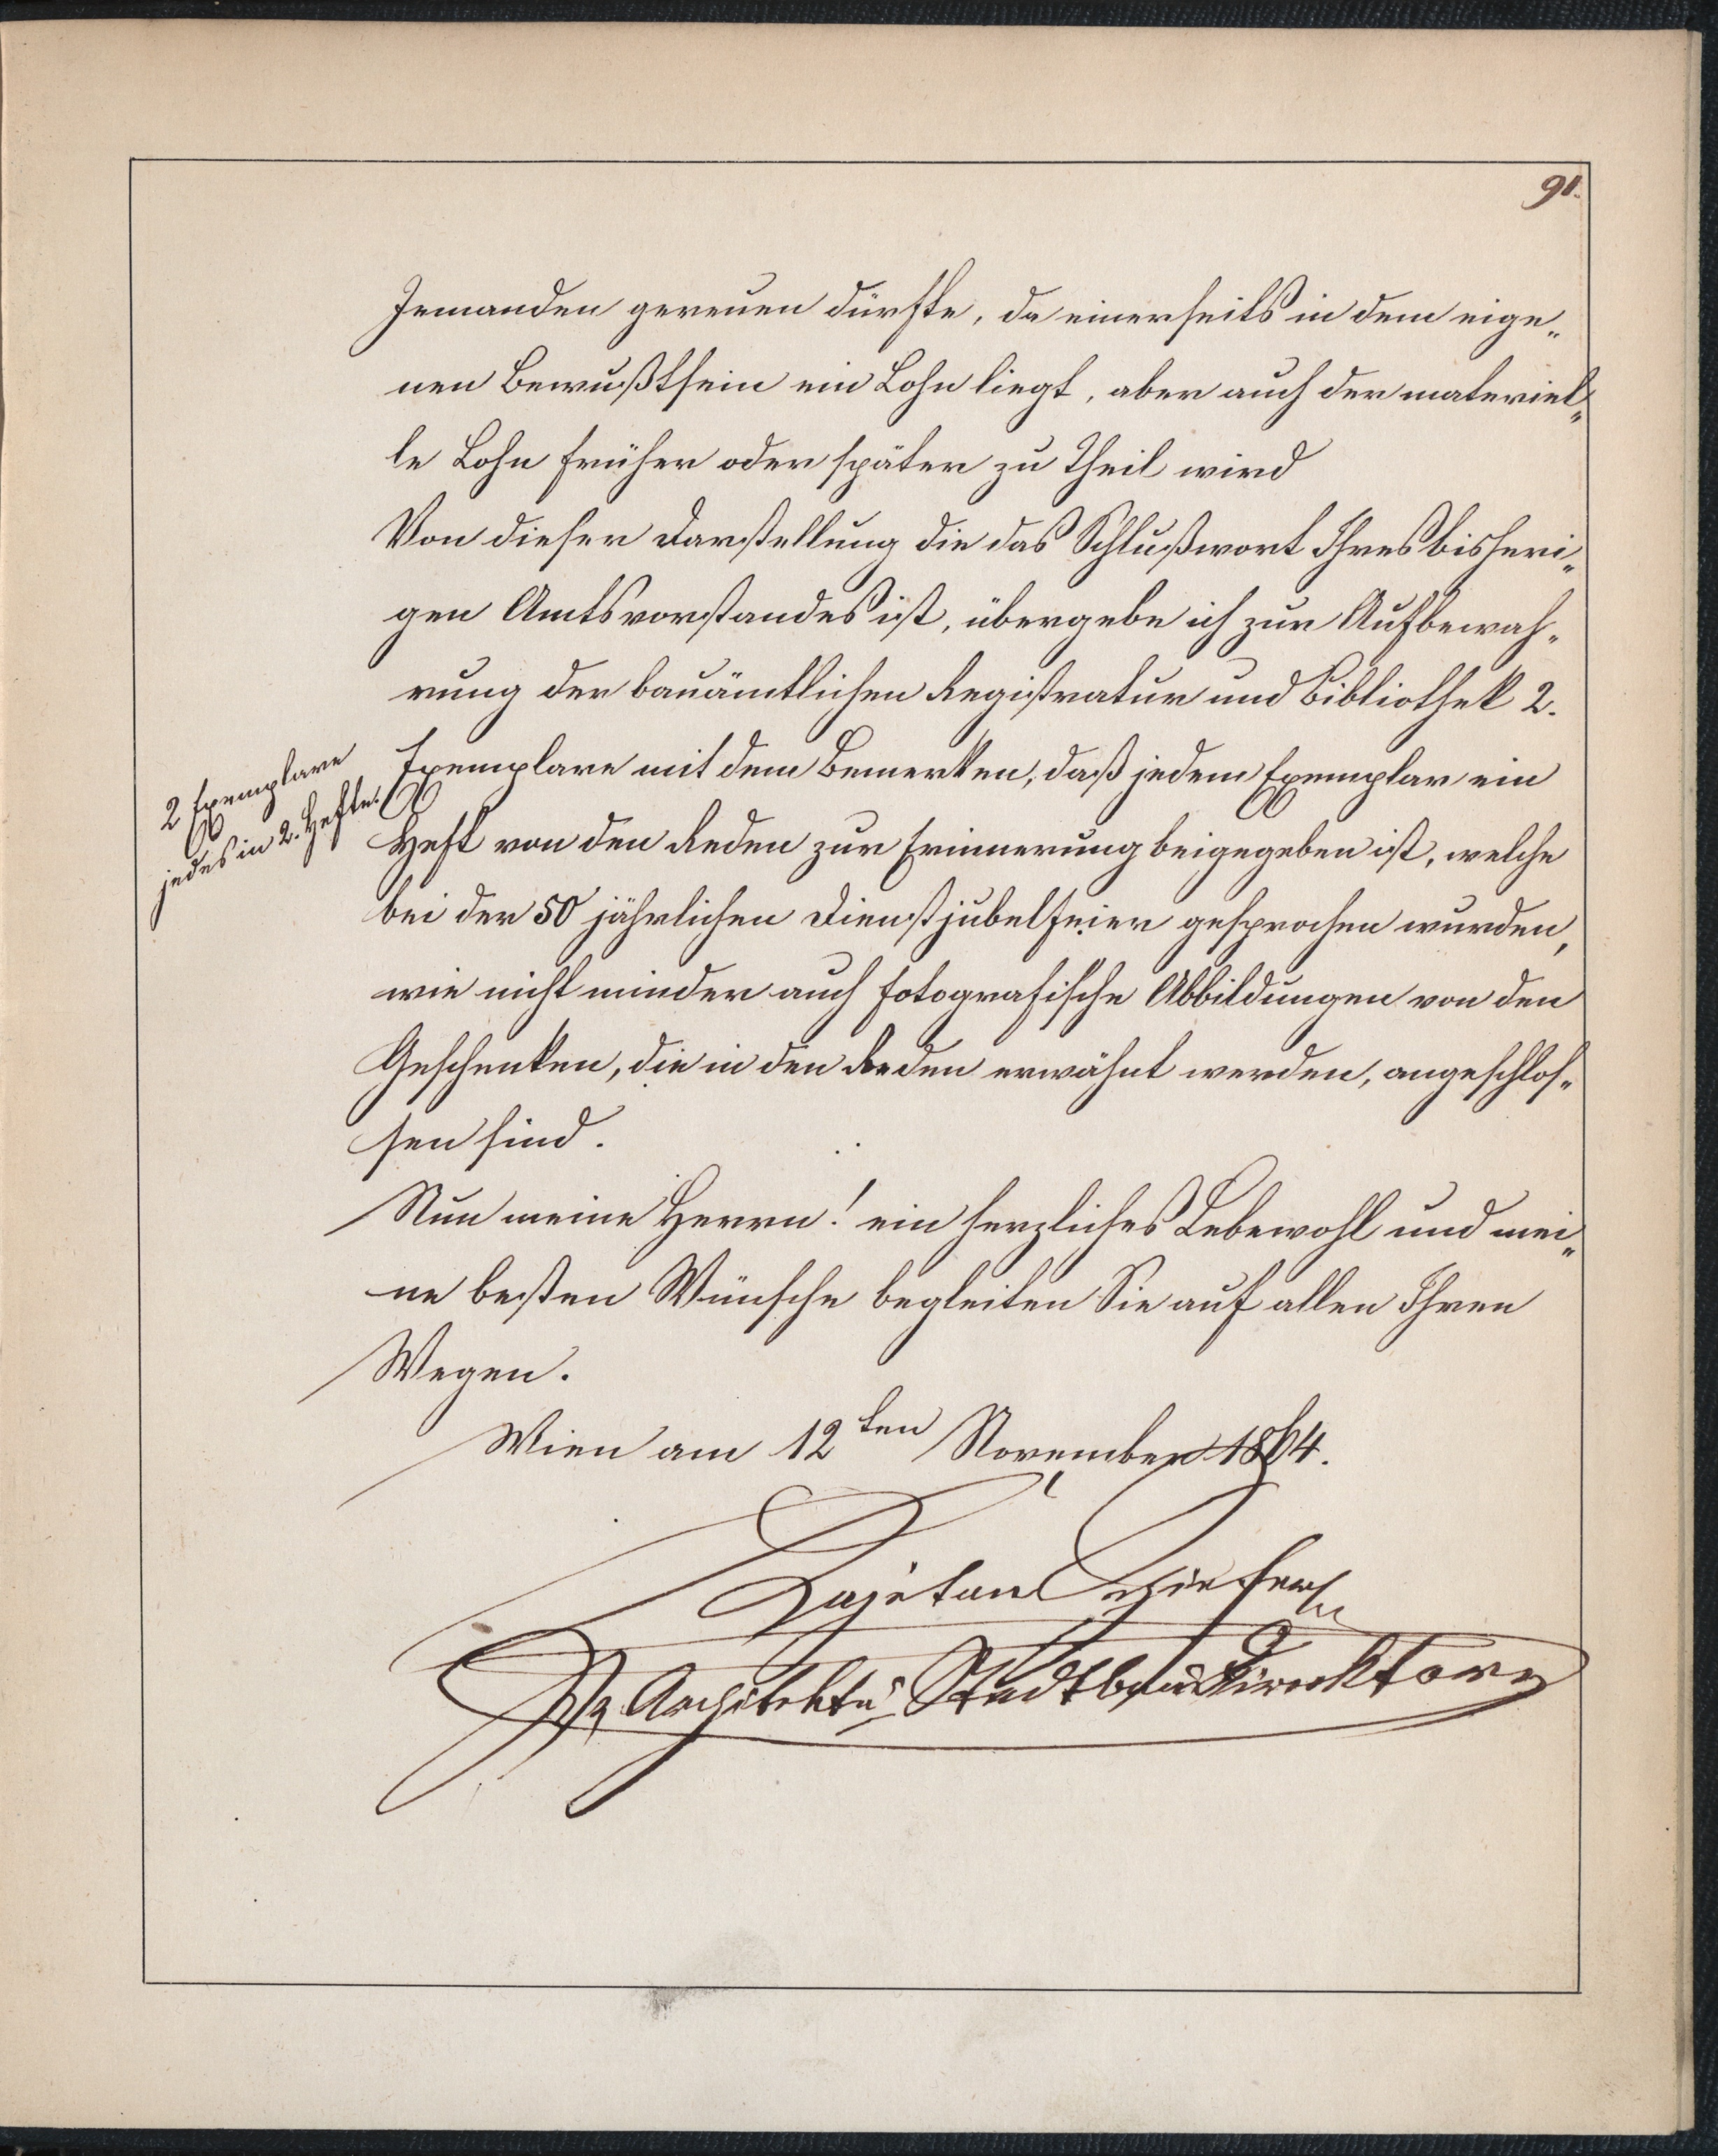 91.
Jemanden gereuen dürfte, da einerseits in dem eige„
nen Bewußtsein ein Lohn liegt, aber auch der materiel„
le Lohn früher oder später zu Theil wird
Von dieser Darstellung die das Schlußwort Ihres bisheri„
gen Amtsvorstandes ist, übergebe ich zur Aufbewah„
rung der bauämtlichen Registratur und Bibliothek 2.
Exemplare mit dem Bemerken, daß jedem Exemplar ein
2 Exemplare
jedes in 2. Hefte.
Heft von den Reden zur Erinnerung beigegeben ist, welche
bei der 50 jährlichen Dienstjubelfeier gesprochen wurden,
wie nicht minder auch fotografische Abbildungen von den
Geschenken, die in den Reden erwähnt werden, angeschlos„
sen sind.
Nun meine Herrn! ein herzliches Lebewohl und mei„
ne besten Wünsche begleiten Sie auf allen Ihren
Wegen.
Wien am 12ten November 1864.
Kajetan Schiefer
Architekt u. Stadtbau Direktor